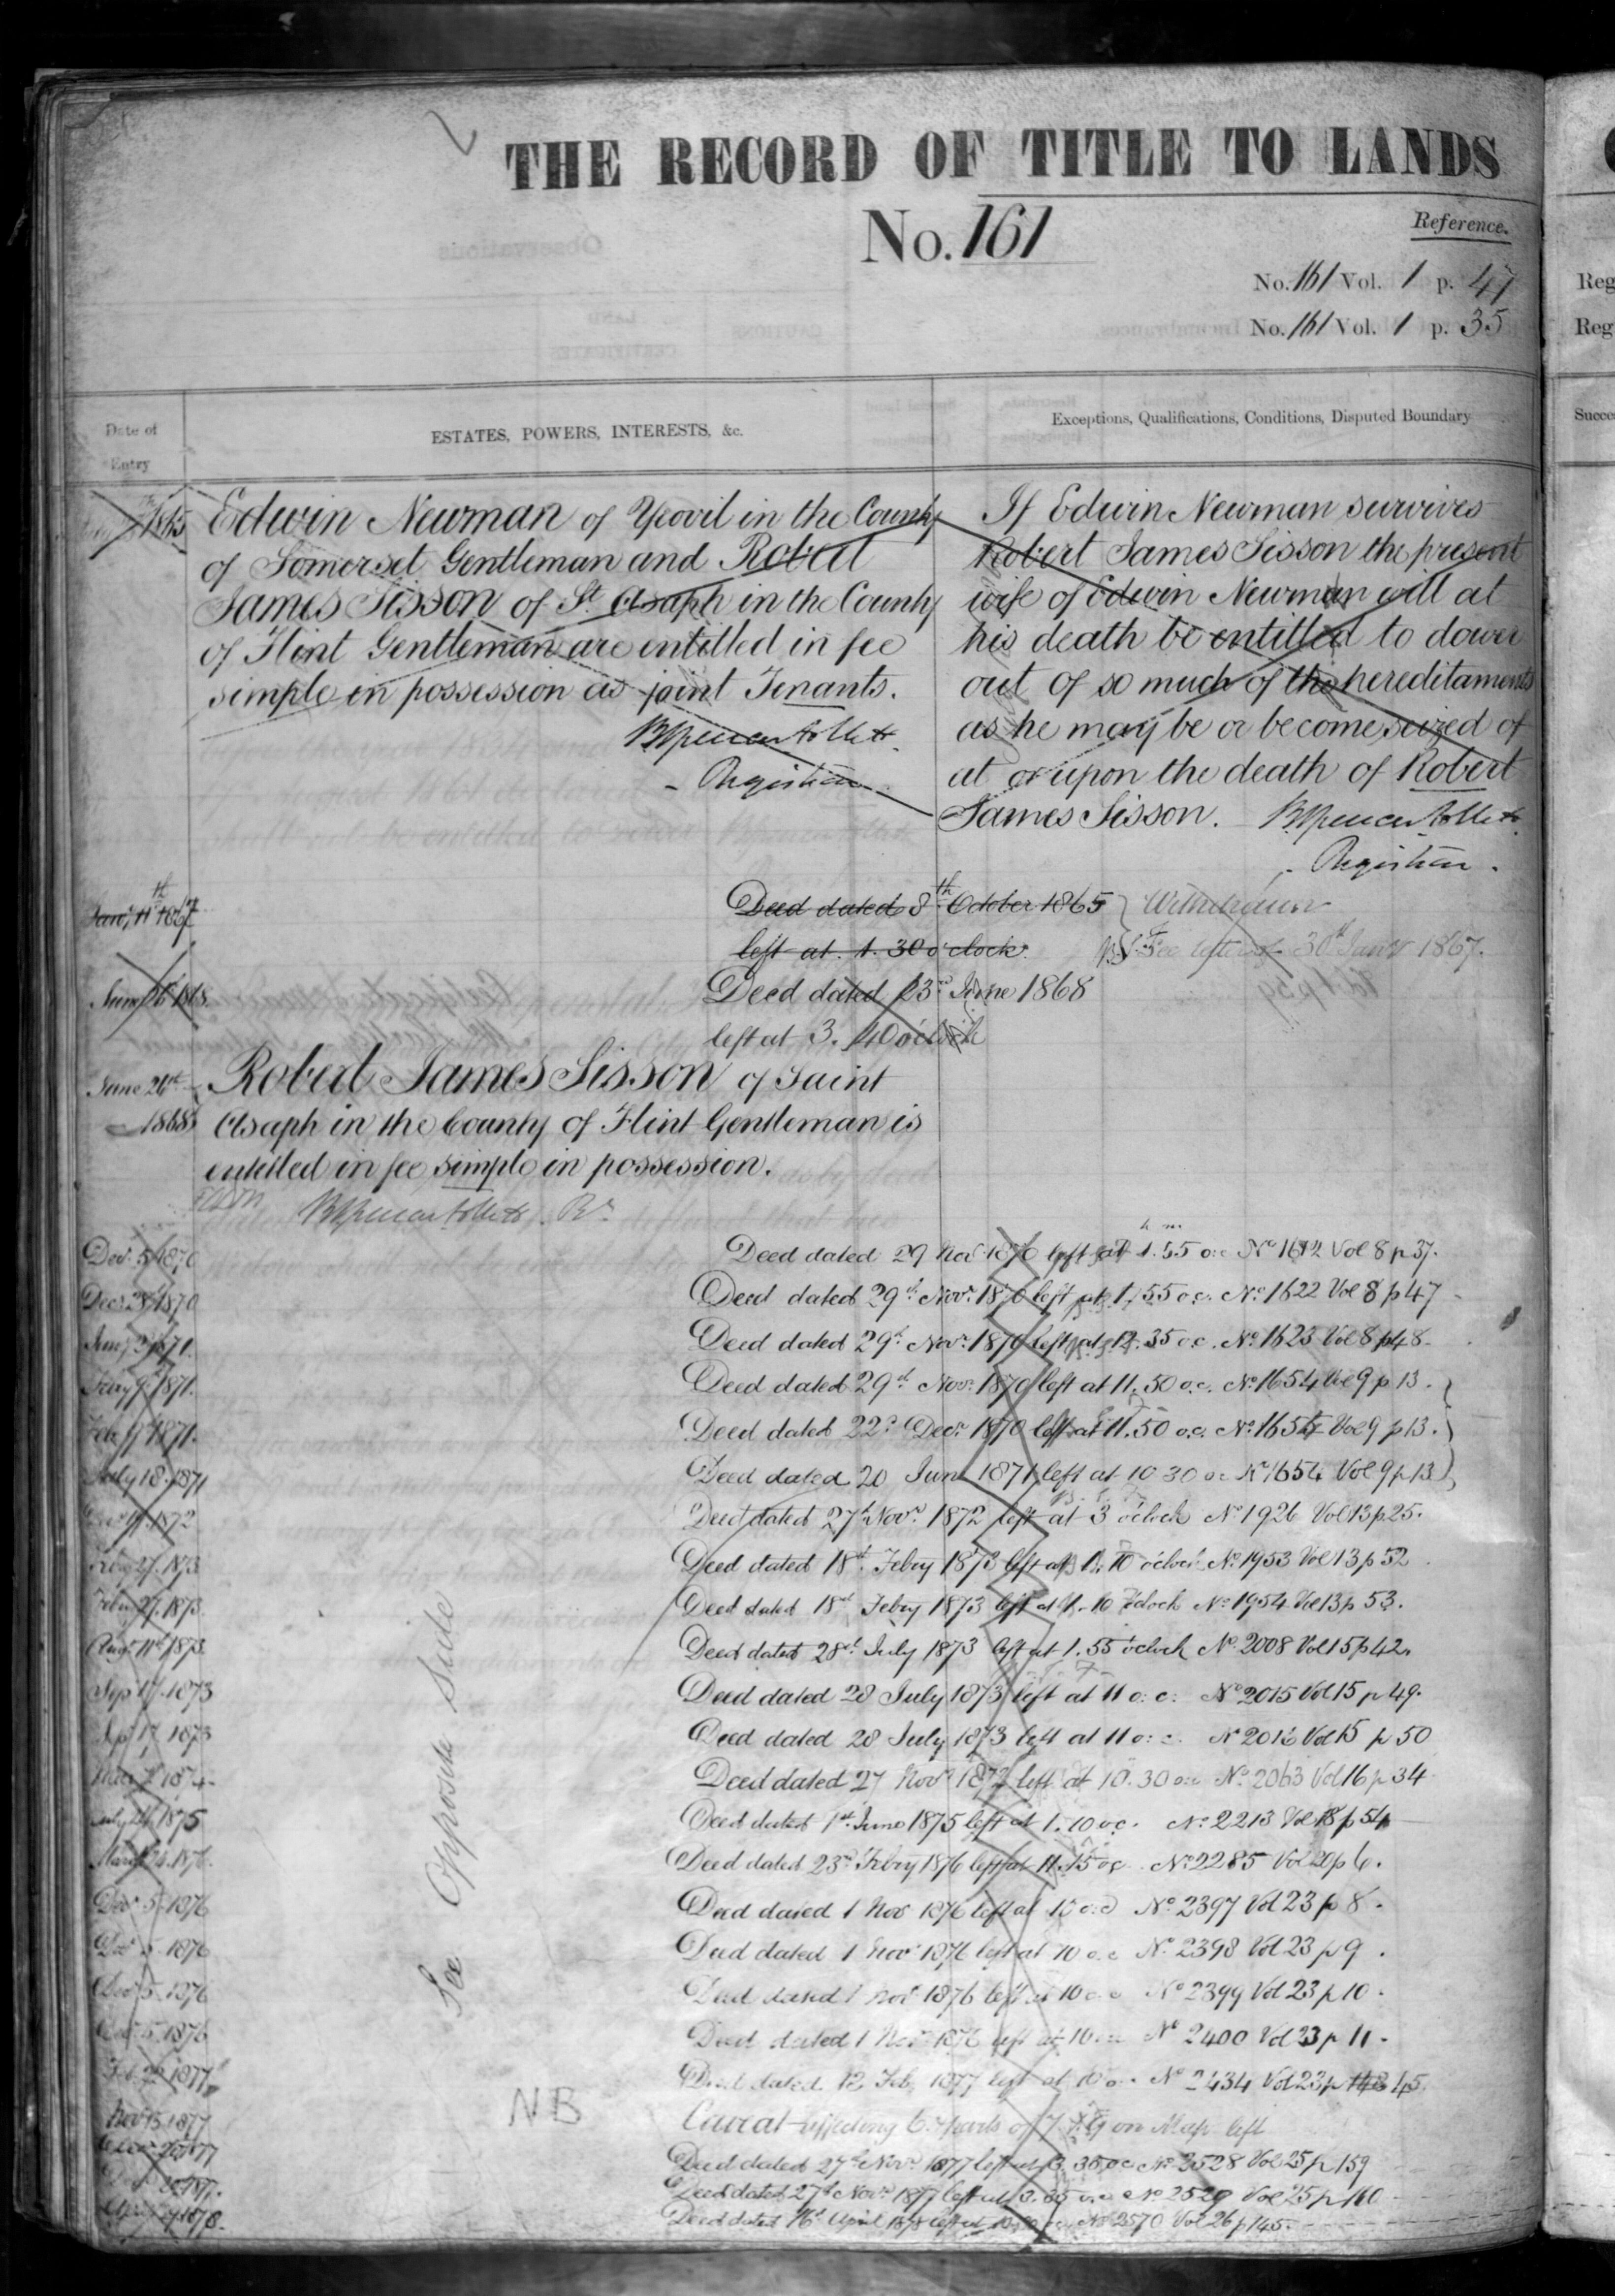 THE RECORD OF TITLE TO LANDS
No. 161
Reference.
No. 161 Vol. 1 p. 47
No. 161 Vol. 1 p. 35
Reg
Reg
Date of Entry
ESTATES, POWERS, INTERESTS, &c.
Exceptions, Qualifications, Conditions, Disputed Boundary
Succe
1865
Edwin Newman of Yeovil in the County
of Somerset Gentleman and Robert
James Sisson of St. Asaph in the County
of Flint Gentleman are entitled in fee
simple in possession as joint Tenants.
Registrar
If Edwin Newman survives
Robert James Sisson the present
wife of Edwin Newman will at
his death be entitled to dower
out of so much of the hereditaments
as he may be or become seized of
at or upon the death of Robert
James Sisson.
Registrar.
Jany. 11th 1867
Deed dated 8th October 1865
left at 1.30 o'clock.
Withdrawn
See letter of 30th Jany 1867.
June 26 1868.
Deed dated 23rd June 1868
left at 3.40 o'clock
June 26th 1868
Robert James Sisson of Saint
Asaph in the County of Flint Gentleman is
entitled in fee simple in possession.
Decr. 5 1870 Deed dated 29 Nov 1870 left at 1.55 o.c No 1612 Vol 8 p 37.
Decr 28 1870 Deed dated 29th Novr. 1870 left at 1.55 o.c. No. 1622 Vol 8 p 47
Jany 3 1871. Deed dated 29th Novr. 1870 left at 12.35 o.c. No. 1623 Vol 8 p 48
Feby 9 1871. Deed dated 29th Novr. 1870 left at 11.50 o.c. No. 1654 Vol 9 p 13.
Feby 9 1871. Deed dated 22d Decr. 1870 left at 11.50 o.c. No. 1654 Vol 9 p 13.
July 18 1871 Deed dated 20 June 1871 left at 10 30 o.c No 1654 Vol 9 p 13
1872 Deed dated 27th Novr. 1872 left at 3 o'clock No 1926 Vol 13 p 25.
Feby 27. 1873 Deed dated 18th Feby 1873 left at 1.10 o'clock No. 1953 Vol 13 p 52
Feby 27. 1873 Deed dated 18th Feby 1873 left at 1.10 o'clock No. 1954 Vol 13 p 53.
Augt 11th 1873 Deed dated 28th July 1873 left at 1.55 o'clock No. 2008 Vol 15 p 42.
Sep 17. 1873 Deed dated 28 July 1873 left at 11 o.c. No 2015 Vol 15 p 49.
Sep 17 1873 Deed dated 28 July 1873 left at 11 o.c. No 2016 Vol 15 p 50
1874 Deed dated 27 Novr 1872 left at 10.30 o.c No. 2063 Vol 16 p 34
July 1875 Deed dated 1st June 1875 left at 1.10 o.c. No. 2213 Vol 18 p 54
March 24. 1876. Deed dated 23rd Feby 1876 left at 11.15 o.c. No. 2285 Vol 20 p 6.
Decr 5. 1876 Deed dated 1 Nov 1876 left at 10 o.c No 2397 Vol 23 p 8.
Decr 5. 1876 Deed dated 1 Novr 1876 left at 10 o.c No. 2398 Vol 23 p 9.
Decr 5. 1876 Deed dated 1 Novr 1876 left at 10 o.c No 2399 Vol 23 p 10.
Decr 5. 1876 Deed dated 1 Novr 1876 left at 10 o.c No 2400 Vol 23 p 11.
Feb 1877 Deed dated 12 Feb 1877 left at 10 o.c No 2434 Vol 23 p 45.
Novr 15 1877 Caveat affecting 6 parts of on Map left
1877 Deed dated 27th Novr. 1877 left at 3.35 o.c No 2528 Vol 25 p 159
1877. Deed dated 27th Novr. 1877 left at 3.35 o.c No 2529 Vol 25 p 160
April 1878. Deed dated 16th April 1878 left at No 2570 Vol 26 p 145.
See Opposite Side
NB